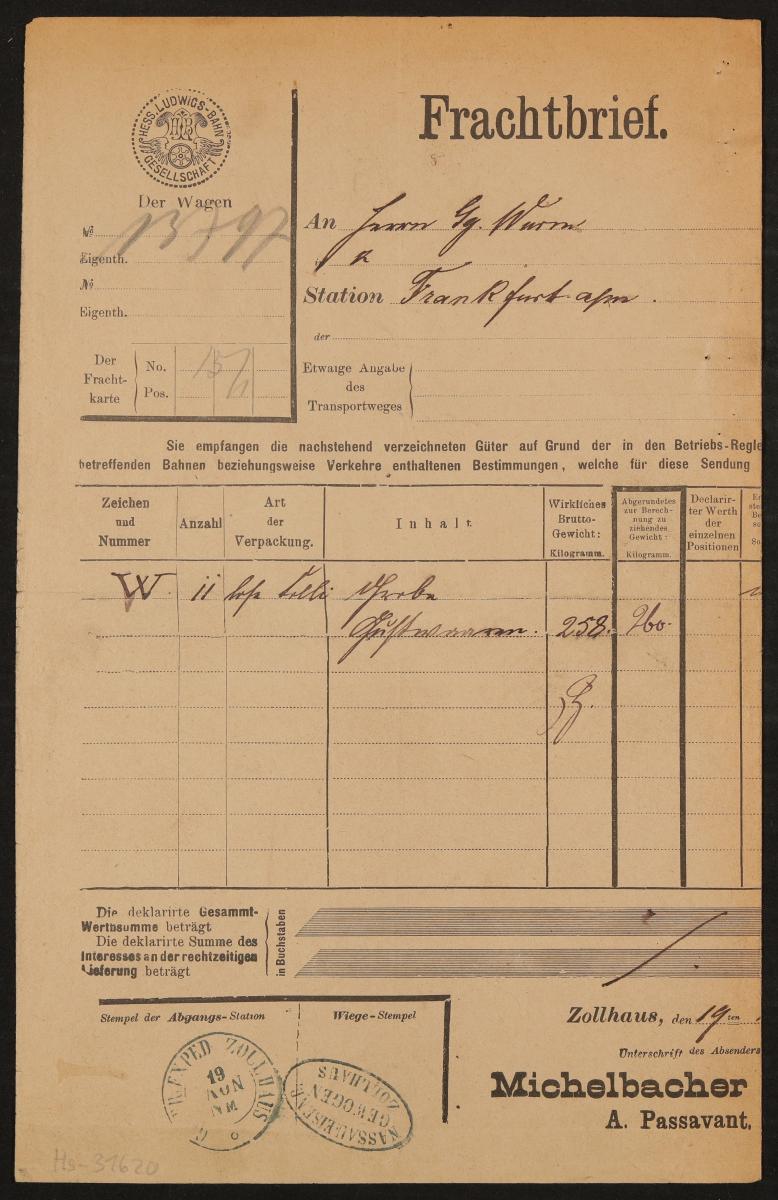 HESS. LUDWIGS-BAHN
GESELLSCHAFT
Frachtbrief.
Der Wagen
No
Eigenth.
No
Eigenth.
An Herrn Gg. Wurm
Station Frankfurt a/m.
der
Der
Fracht-
karte
No.
Pos.
Etwaige Angabe
des
Transportweges
Sie empfangen die nachstehend verzeichneten Güter auf Grund der in den Betriebs-Regle
betreffenden Bahnen beziehungsweise Verkehre enthaltenen Bestimmungen, welche für diese Sendung
Zeichen
und
Nummer
Anzahl
Art
der
Verpackung.
Inhalt
Wirkliches
Brutto-
Gewicht:
Kilogramm.
Abgerundetes
zur Berech-
nung zu
ziehendes
Gewicht:
Kilogramm.
Declarir-
ter Werth
der
einzelnen
Positionen
W 11 lose Colli Grobe
Gußwaaren. 258. 260.
Die deklarirte Gesammt-
Werthsumme beträgt
Die deklarirte Summe des
Interesses an der rechtzeitigen
Lieferung beträgt
in Buchstaben
Stempel der Abgangs-Station
Wiege-Stempel
Zollhaus, den 19ten
Unterschrift des Absenders
Michelbacher
A. Passavant.
G ZOLLHAUS
19
NOV
NM
NASSAU.EISENB.
GEWOGEN
ZOLLHAUS
Hs-31620